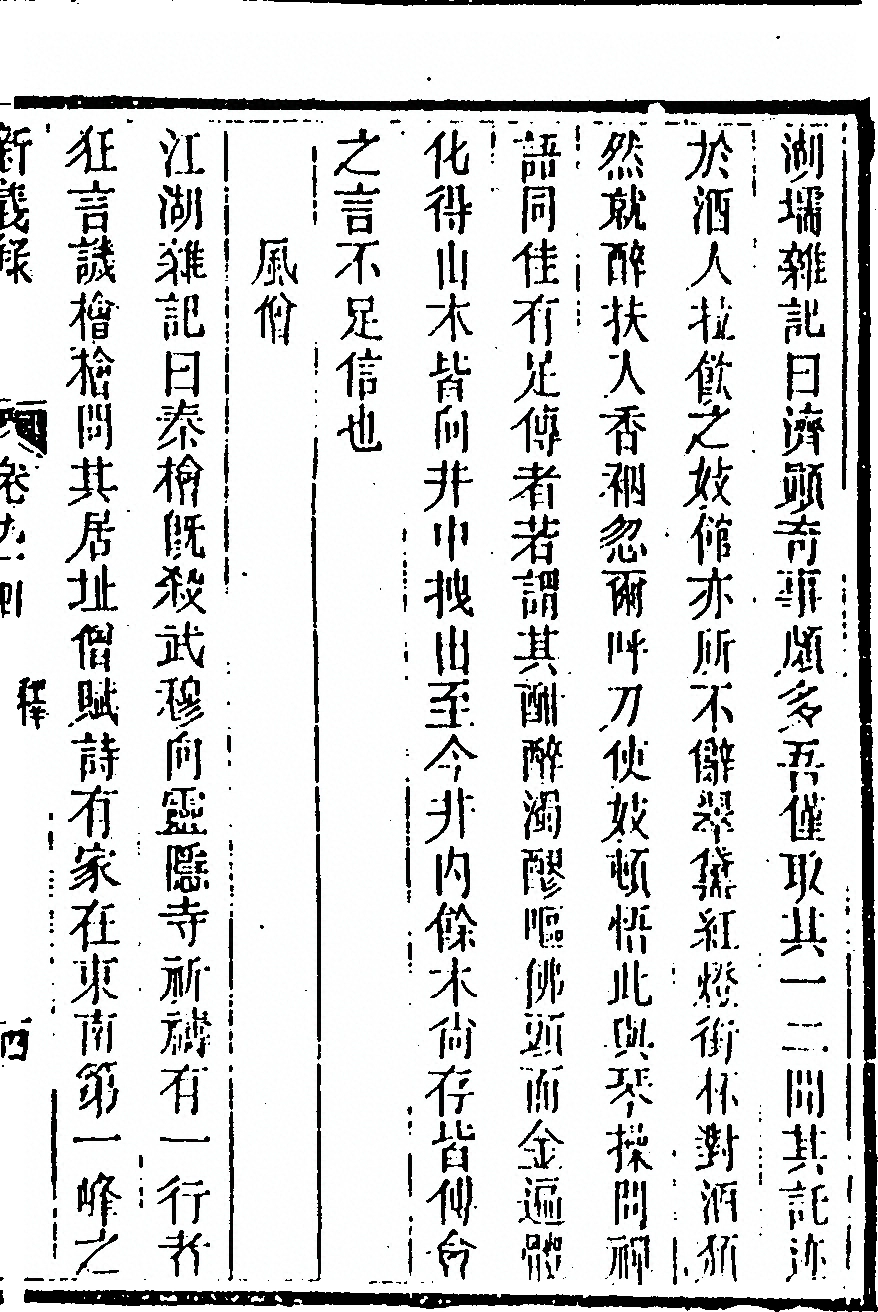 湖壖雜記曰濟顚奇事頗多吾僅取其一二聞其託迹
於酒人拉飲之妓館亦所不辭翠黛紅燈銜杯對酒頹
然就醉扶入香衾忽爾呼刀使妓頓悟此與琴操問禪
語同佳有足傳者若謂其酣醉濁醪嘔佛頭面金遍體
化得山木皆向井中拽出至今井內餘木尙存皆傅會
之言不足信也
風僧
江湖雜記曰秦檜旣殺武穆向靈隱寺祈禱有一行者
狂言譏檜檜問其居址僧賦詩有家在東南第一峰之
新義錄
卷九十
釋
四